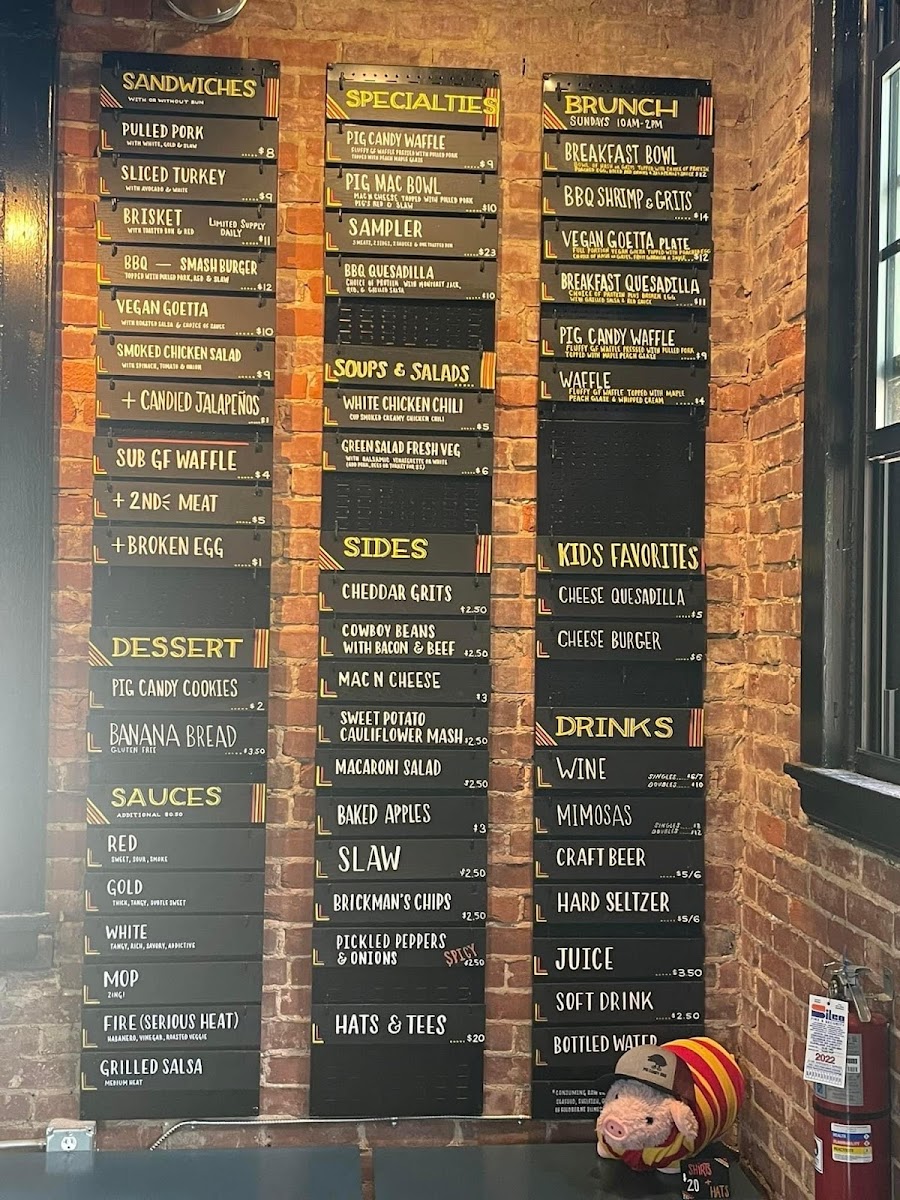 SANDWICHES
WITH OR WITHOUT BUN
PULLED PORK
WITH WHITE, GOLD & SLAW
.....$8
SLICED TURKEY
WITH AVOCADO & WHITE
.....$9
BRISKET
WITH TOASTED BUN & RED
LIMITED SUPPLY
DAILY
.....$11
BBQ — SMASHBURGER
TOPPED WITH PULLED PORK, RED & SLAW
.....$12
VEGAN GOETTA
WITH ROASTED SALSA & CHOICE OF SAUCE
.....$10
SMOKED CHICKEN SALAD
WITH SPINACH, TOMATO & ONION
.....$9
+ CANDIED JALAPEÑOS
.....$1
SUB GF WAFFLE
.....$4
+ 2ND MEAT
.....$5
+ BROKEN EGG
.....$1
DESSERT
PIG CANDY COOKIES
.....$2
BANANA BREAD
GLUTEN FREE
.....$3.50
SAUCES
ADDITIONAL $0.50
RED
SWEET, SOUR, SMOKE
GOLD
THICK, TANGY, SUBTLE SWEET
WHITE
TANGY, RICH, SAVORY, ADDICTIVE
MOP
ZING!
FIRE (SERIOUS HEAT)
HABANERO, VINEGAR, ROASTED VEGGIE
GRILLED SALSA
MEDIUM HEAT
SPECIALTIES
PIG CANDY WAFFLE
FLUFFY GF WAFFLE PRESSED WITH PULLED PORK
TOPPED WITH PEACH MAPLE GLAZE
.....$9
PIG MAC BOWL
MAC N CHEESE TOPPED WITH PULLED PORK
PIG'S RED & SLAW
.....$10
SAMPLER
2 MEATS, 2 SIDES, 2 SAUCES & ONE TOASTED BUN
.....$23
BBQ QUESADILLA
CHOICE OF PROTEIN WITH MONTEREY JACK,
RED, & GRILLED SALSA
.....$10
SOUPS & SALADS
WHITE CHICKEN CHILI
CUP SMOKED CREAMY CHICKEN CHILI
.....$5
GREEN SALAD FRESH VEG
WITH BALSAMIC VINAIGRETTE OR WHITE
.....$6
SIDES
CHEDDAR GRITS
$2.50
COWBOY BEANS
WITH BACON & BEEF $2.50
MAC N CHEESE
$3
SWEET POTATO
CAULIFLOWER MASH $2.50
MACARONI SALAD
$2.50
BAKED APPLES
$3
SLAW
$2.50
BRICKMAN'S CHIPS
$2.50
PICKLED PEPPERS
& ONIONS
SPICY
$2.50
HATS & TEES
.....$20
BRUNCH
SUNDAYS 10AM-2PM
BREAKFAST BOWL
BOWL OF HASH OR GRITS TOPPED WITH CHOICE OF PROTEIN
$12
BBQ SHRIMP & GRITS
.....$14
VEGAN GOETTA PLATE
$12
BREAKFAST QUESADILLA
CHOICE OF PROTEIN PLUS BROKEN EGG
WITH GRILLED SALSA & RED SAUCE
.....$11
PIG CANDY WAFFLE
FLUFFY GF WAFFLE PRESSED WITH PULLED PORK
TOPPED WITH MAPLE PEACH GLAZE
.....$9
WAFFLE
FLUFFY GF WAFFLE TOPPED WITH MAPLE
PEACH GLAZE & WHIPPED CREAM
.....$4
KIDS FAVORITES
CHEESE QUESADILLA
.....$5
CHEESE BURGER
.....$6
DRINKS
WINE
SINGLES.....$6/7
DOUBLES.....$10
MIMOSAS
SINGLES.....$8
DOUBLES.....$12
CRAFT BEER
.....$5/6
HARD SELTZER
.....$5/6
JUICE
.....$3.50
SOFT DRINK
.....$2.50
BOTTLED WATER
*CONSUMING RAW
SHIRTS
+
$20 HATS
Silco
2022